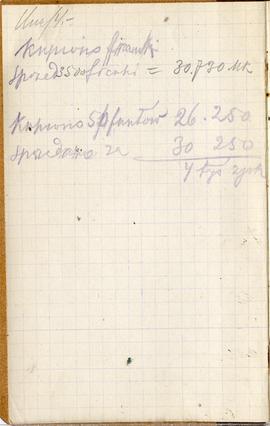 Kupiono franki
sprzed 3500 franki = 30.730 Mk
Kupiono 5 funtów 26.250
sprzedano za 30 250
4 tys zysk